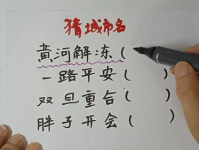 猜城市名
黄河解冻(
一路平安(    )
双旦重合(    )
胖子开会(    )